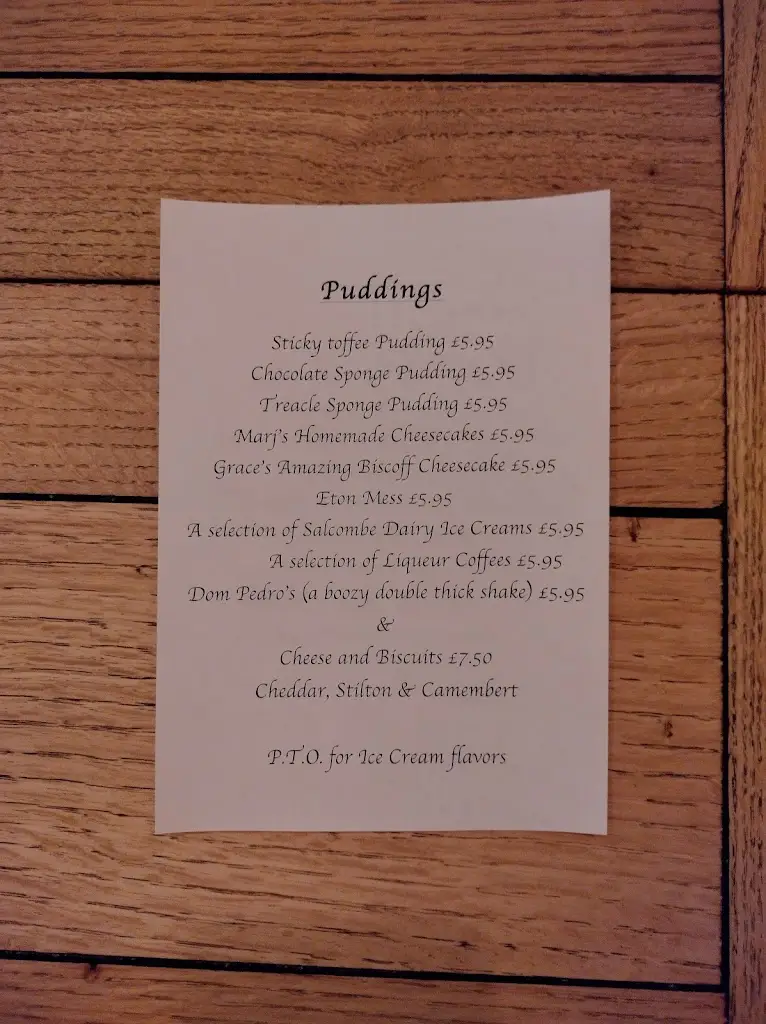 Puddings
Sticky toffee Pudding £5.95
Chocolate Sponge Pudding £5.95
Treacle Sponge Pudding £5.95
Marj's Homemade Cheesecakes £5.95
Grace's Amazing Biscoff Cheesecake £5.95
Eton Mess £5.95
A selection of Salcombe Dairy Ice Creams £5.95
A selection of Liqueur Coffees £5.95
Dom Pedro's (a boozy double thick shake) £5.95
&
Cheese and Biscuits £7.50
Cheddar, Stilton & Camembert
P.T.O. for Ice Cream flavors